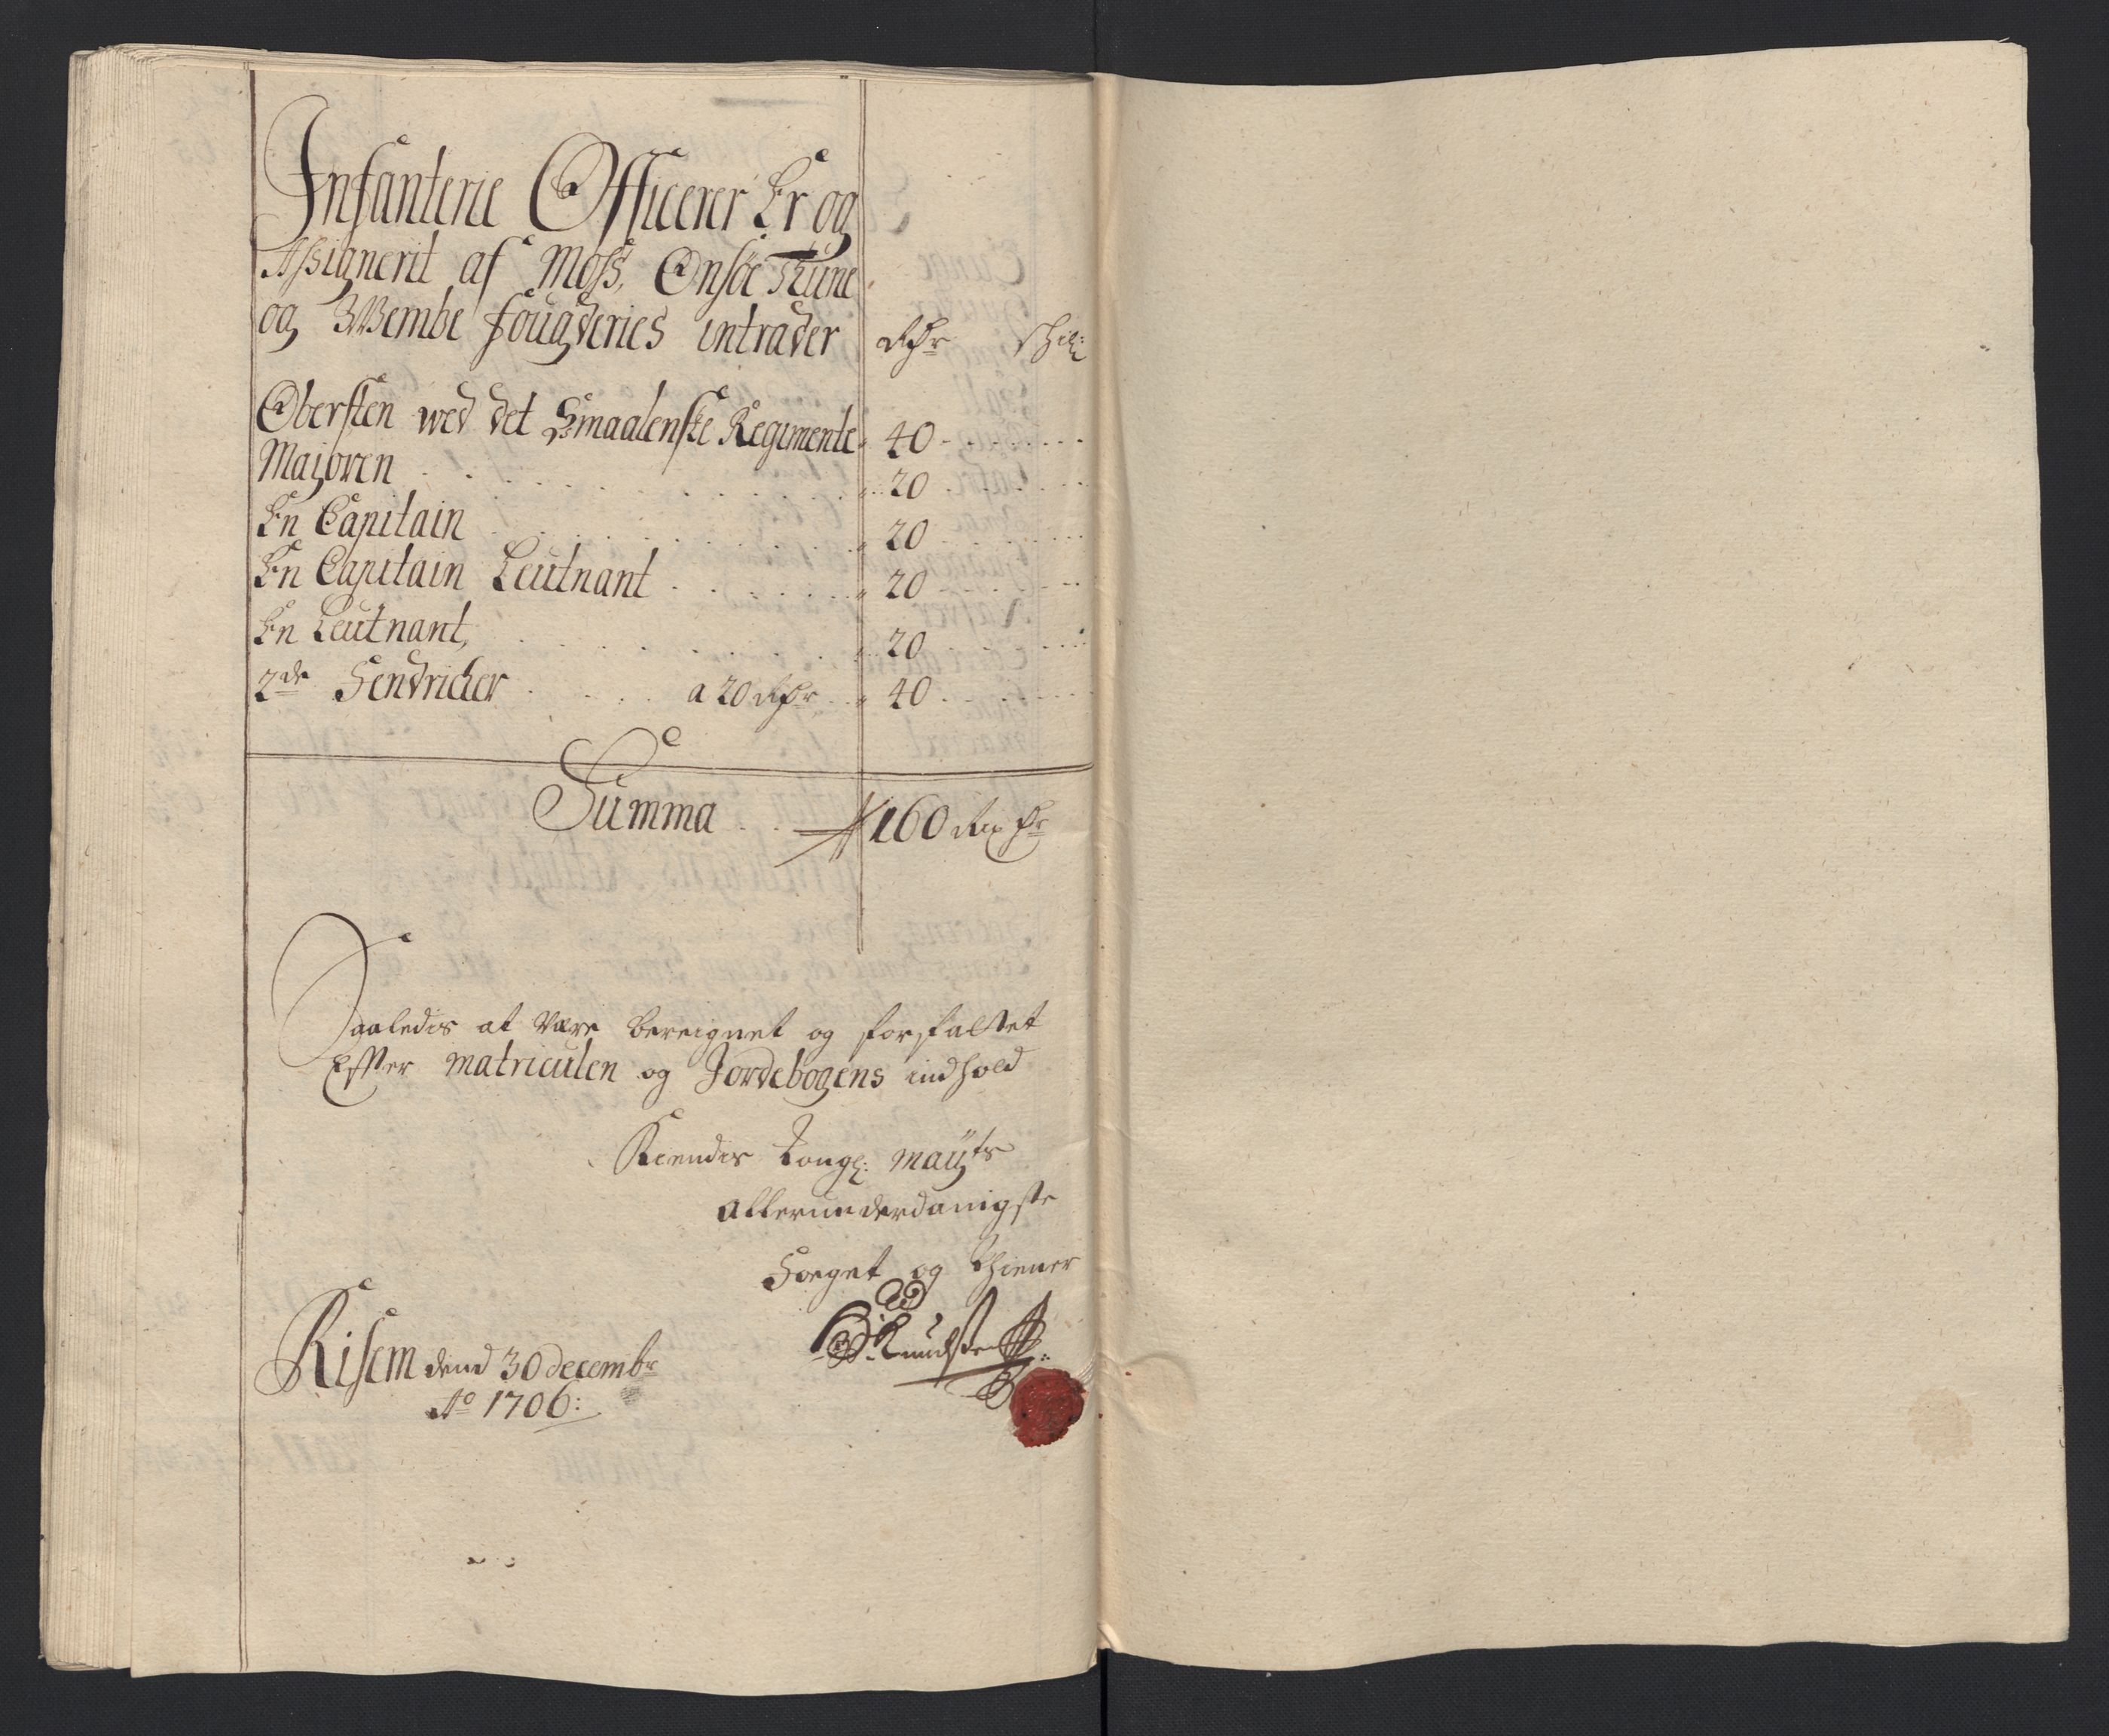 Infanterie Officerer Er og
Assignerit af Moss, Onsöe Thune
og Wembe fougderies intrader
Rdr schil:
Obersten wed det Smaalenske Regimente 40
Majoren 20
En Capitain 20
En Capitain Leutnant 20
En Leutnant, 20
2de Fendricher a 20 Rdr 40
Summa 160 Rix dr
Saaledis at Være bereignet og forfattet
Effter matriculen og Jordebogens indhold
Kiendis kongl: mayts
allerunderdanigste
Foeget og Thiener
Knudsen
Risem dend 30 decembr
Ao 1706: